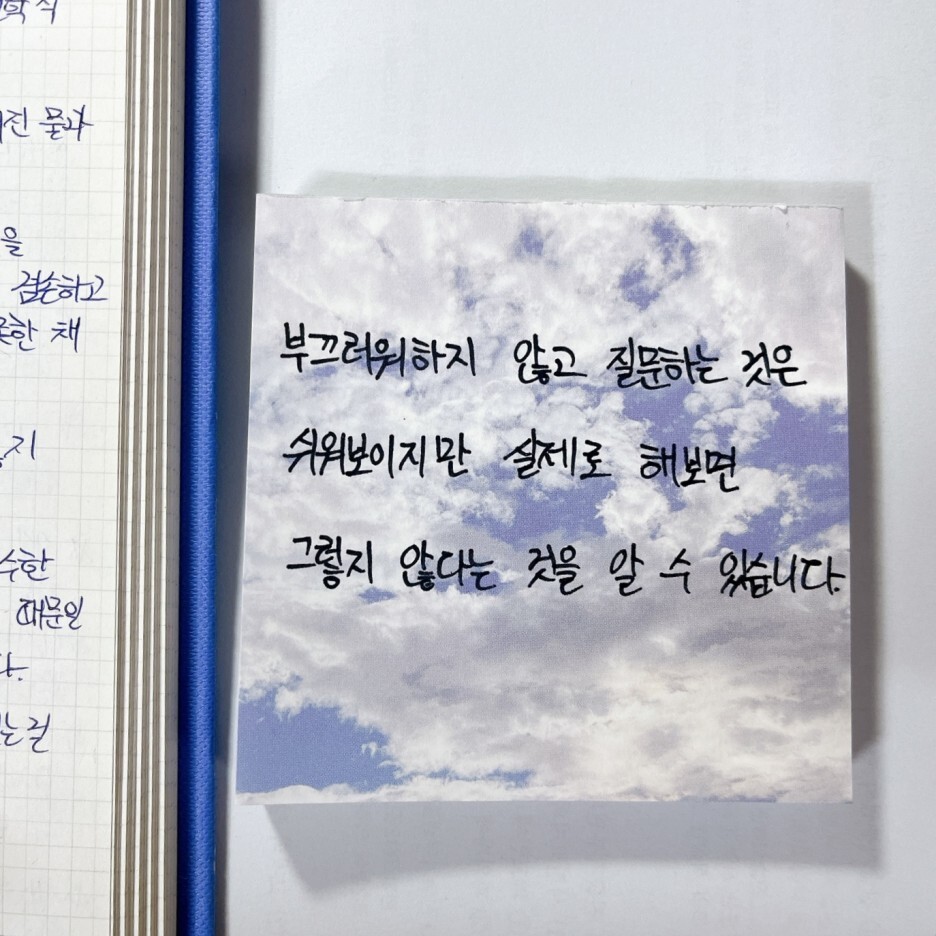 물과
을
겸손하고
채
수한
때문일
부끄러워하지 않고 질문하는 것은
쉬워보이지만 실제로 해보면
그렇지 않다는 것을 알 수 있습니다.